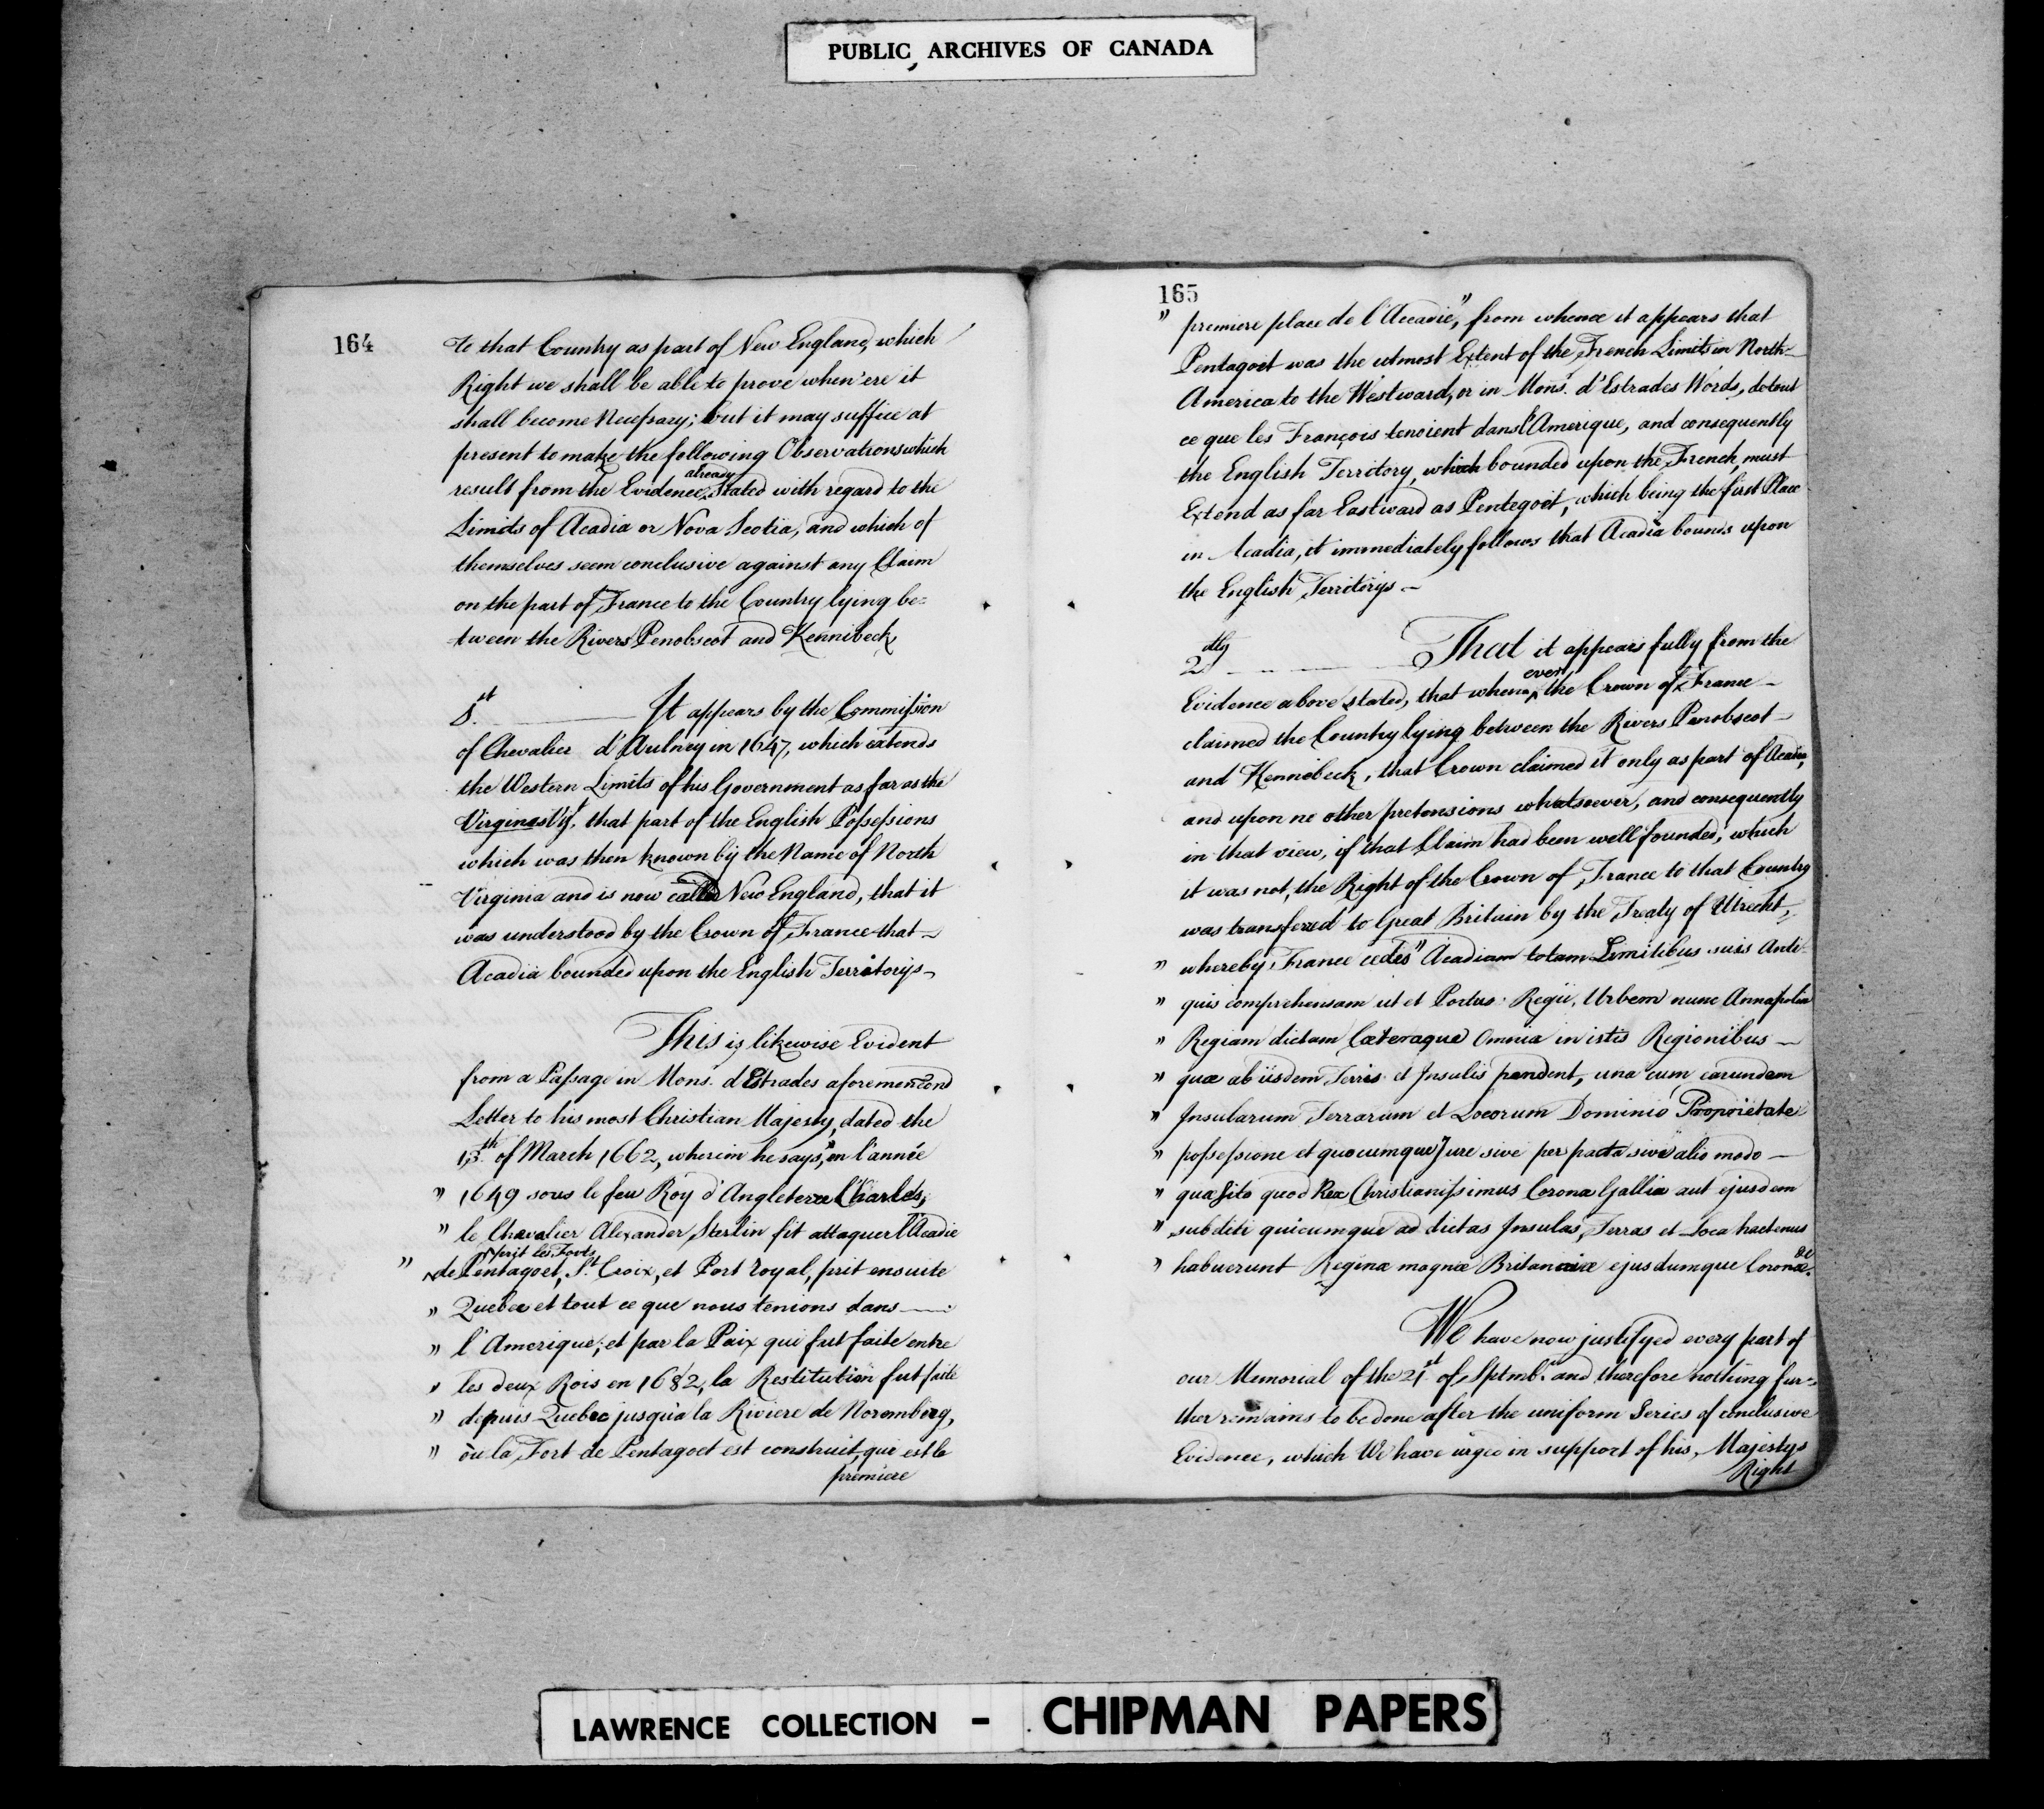 PUBLIC ARCHIVES OF CANADA
164
to that Country as part of New England, which
Right we shall be able to prove when'ere it
shall become Necessary; but it may suffice at
present to make the following Observations which
already
result from the Evidence stated with regard to the
Limits of Acadia or Nova Scotia, and which of
themselves seem conclusive against any Claim
on the part of France to the Country lying be=
tween the Rivers Penobscot and Kennibeck
1st It appears by the Commission
of Chevalier d'Aulney in 1647, which extends
the Western Limits of his Government as far as the
Virgines Vizt, that part of the English Possessions
which was then known by the Name of North
Virginia and is now called New England, that it
was understood by the Crown of France that
Acadia bounded upon the English Territorys
This is likewise Evident
from a Passage in Mons. d'Estrades aforementiond
Letter to his most Christian Majesty, dated the
13th of March 1662, wherein he says, "en l'année
" 1649 sous le feu Roy d'Angleterre Charles,
" le Chevalier Alexander Sterlin fit attaquer l'Acadie
prit les Forts
" de Pentagoet, St. Croix, et Port royal, prit ensuite
" Quebec et tout ce que nous tenions dans
" l'Amerique; et par la Paix qui fut faite entre
" les deux Rois en 1632, la Restitution fut faite
" depuis Quebec jusqu'a la Riviere de Norembeg,
" ou la Fort de Pentagoet est construit, qui est la
premiere
165
" premiere place de l'Accadie", from whence it appears that
Pentagoet was the utmost Extent of the French Limits in North
America to the Westward, or in Mons. d'Estrades Words, de tout
ce que les François tenoient dans l'Amerique, and consequently
the English Territory, which bounded upon the French, must
Extend as far Eastward as Pentegoet, which being the first Place
in Acadia, it immediately follows that Acadia bounds upon
the English Territorys
2dly That it appears fully from the
ever
Evidence above stated, that when the Crown of France
claimed the Country lying between the Rivers Penobscot
and Kennebeck, that Crown claimed it only as part of Acadia,
and upon no other pretensions whatsoever, and consequently
in that view, if that Claim had been well founded, which
it was not, the Right of the Crown of France to that Country
was transfered to Great Britain by the Treaty of Utrecht,
" whereby France cedes "Acadiam totam Limitibus suis Anti-
" quis comprehensam ut et Portus Regii, Urbem nunc Annapolin
" Regiam dictam Cæteraque Omnia in istis Regionibus
" quæ ab iisdem Terris et Insulis pendent, una cum earundem
" Insularum Terrarum et Locorum Dominio Proprietate
" possessione et quocumque Jure sive per pacta sive alio modo
" quæsito quod Rex Christianissimus Corona Gallia aut ejusdem
" subditi quicumque ad dictas Insulas, Terras et Loca hactenus
" habuerunt Reginæ magnæ Britanniæ ejusdumque Coronæ &c.
We have now justifyed every part of
our Memorial of the 21st of Sptmbr. and therefore nothing fur=
ther remains to be done after the uniform Series of conclusive
Evidence, which We have urged in support of his Majestys
Right
LAWRENCE COLLECTION - CHIPMAN PAPERS